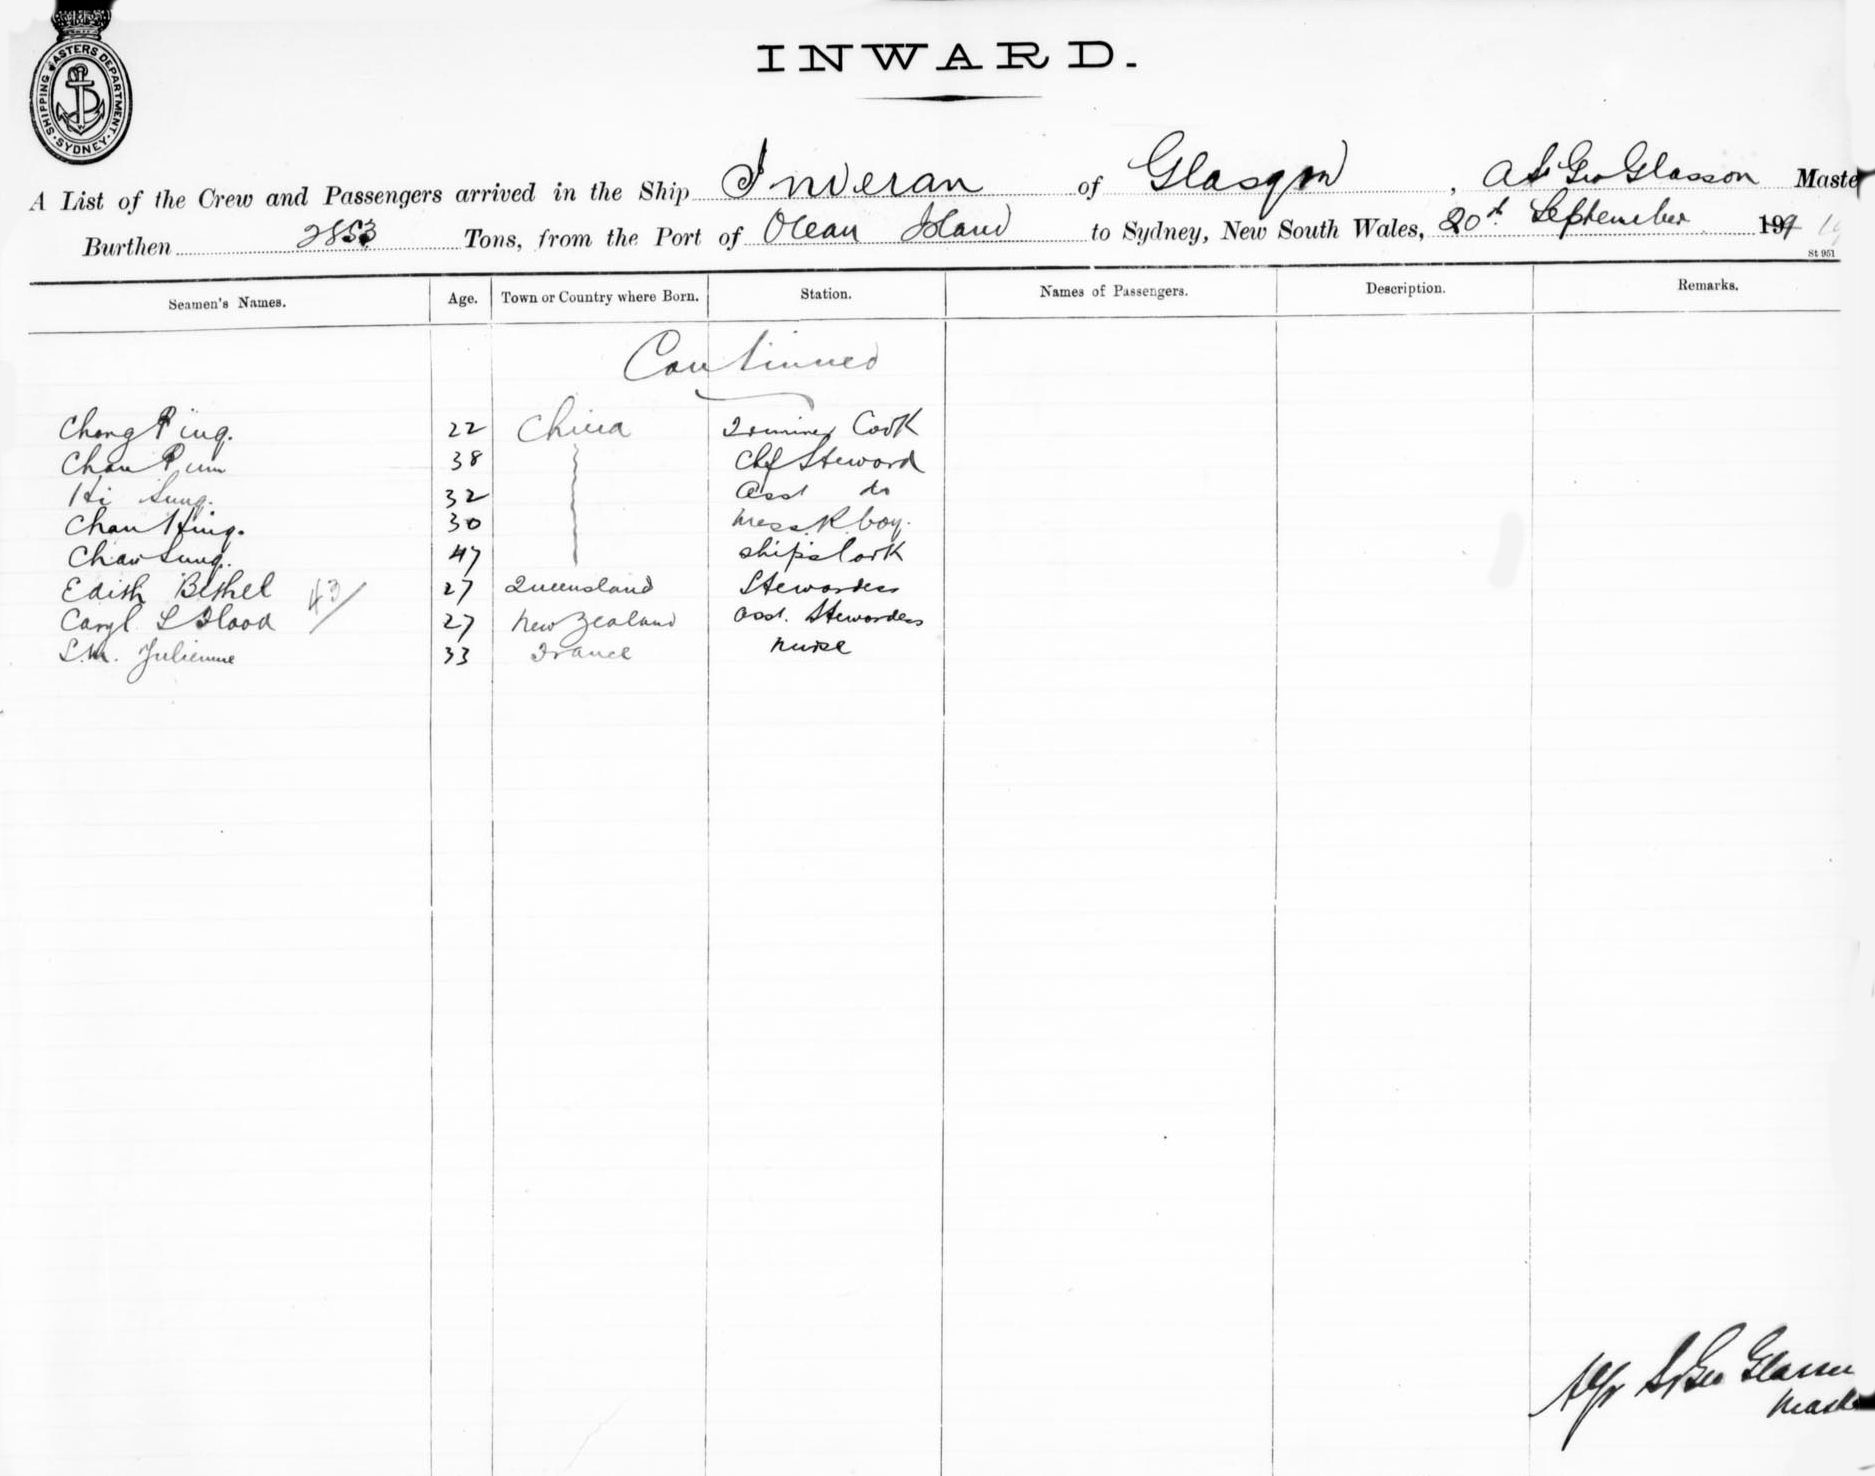 SHIPPING MASTERS DEPARTMENT. SYDNEY.
INWARD.
A List of the Crew and Passengers arrived in the Ship Inveran of Glasgow, A St Geo Glasson Maste
Burthen 2853 Tons, from the Port of Ocean Island to Sydney, New South Wales, 20th September 191
St 951
Seamen's Names. Age. Town or Country where Born. Station. Names of Passengers. Description. Remarks.
Continued
Chong Ping. 22 China Cook
Chan 38 Chf Steward
Hi Sung. 32 Asst do
Chan Hing. 30 Mess R boy.
Chan Sung. 47 ship's Cook
Edith Bethel 43/ 27 Queensland Stewardess
Caryl L Flood 27 New Zealand asst. Stewardess
S.M. Julienne 33 France nurse
St Geo Glasson
Maste